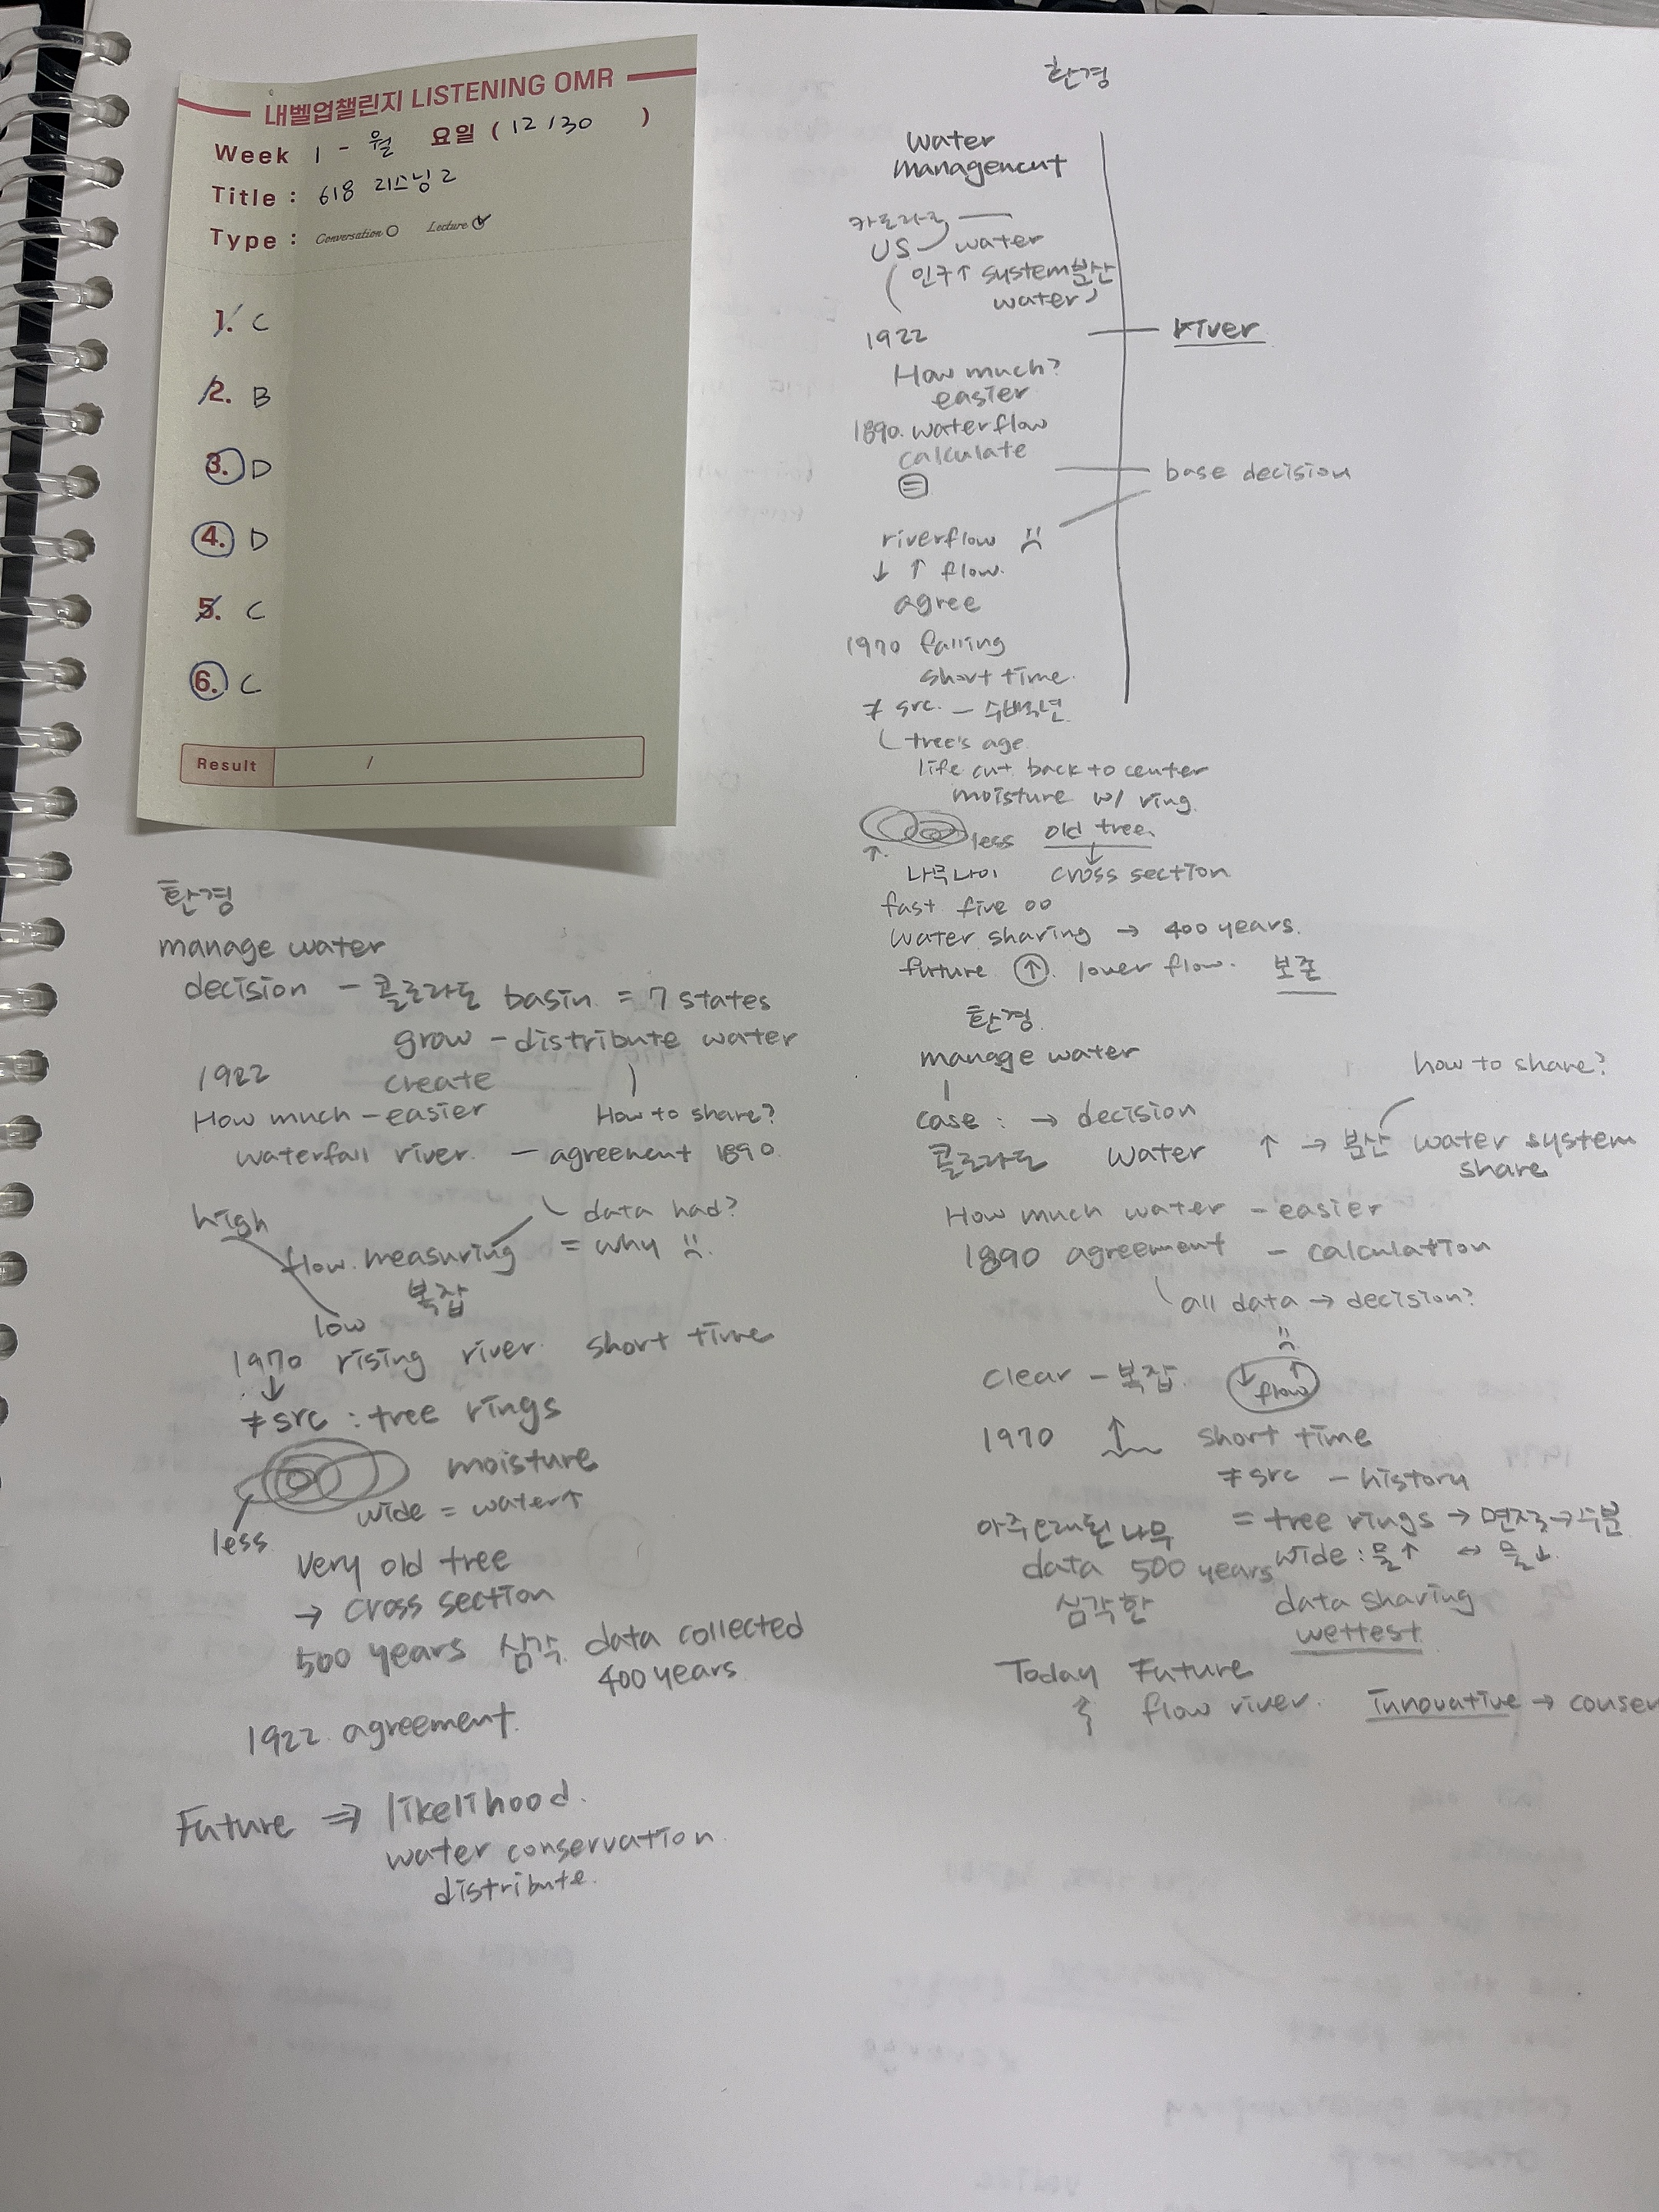 내벨업챌린지 LISTENING OMR
Week 1 - 월 요일 ( 12/30 )
Title : 618 리스닝 2
Type : Conversation Lecture
1. C
2. B
3. D
4. D
5. C
6. C
Result /
환경
water
management
카로라도
US water
인구↑ system분산
water
1922
river
How much?
easier
1890. waterflow
calculate
base decision
riverflow
↓ ↑ flow.
agree
1970 falling
short time.
≠ src. - 수백년
tree's age
life cut back to center
moisture w/ ring.
less old tree.
↑ ↓
나무나이 cross section
fast five 00
water sharing → 400 years.
future ↑. lower flow. 보존
환경
manage water
decision - 콜로라도 basin = 7 states
grow - distribute water
1922 create
How much - easier How to share?
waterfall river. - agreement 1890.
high data had?
flow. measuring = why
복잡
low
1970 rising river. short time
↓
≠ src : tree rings
moisture
wide = water↑
less
very old tree
→ cross section
500 years 심각. data collected
400 years
1922. agreement.
Future ⇒ likelihood.
water conservation.
distribute.
환경.
manage water
how to share?
case : → decision
콜로라도 water ↑ → 분산 water system
share
How much water - easier
1890 agreement - calculation
all data → decision?
clear - 복잡. ↓ flow ↑
1970 ↑ short time
≠ src - history
아주 오래된 나무 = tree rings → 면적 → 수분
data 500 years wide : 물↑ ↔ 물↓.
심각한 data sharing
wettest
Today Future
flow river. innovative → conser